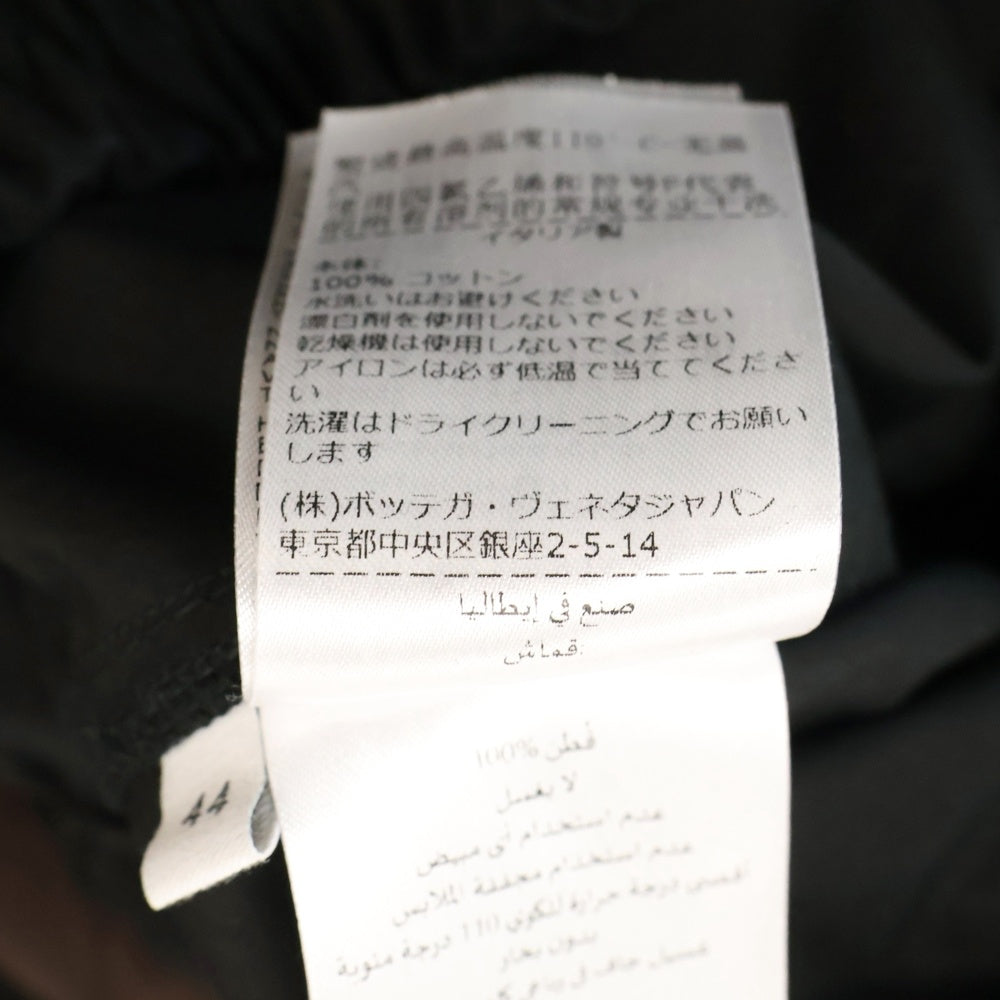 熨烫最高温度110°C-无蒸
汽
使用四氯乙烯和符号P代表
的所有溶剂的常规专业干洗
イタリア製
本体:
100% コットン
水洗いはお避けください
漂白剤を使用しないでください
乾燥機は使用しないでください
アイロンは必ず低温で当ててくださ
い
洗濯はドライクリーニングでお願い
します
(株)ボッテガ・ヴェネタジャパン
東京都中央区銀座2-5-14
صنع في إيطاليا
قماش:
قطن 100%
لا يغسل
عدم استخدام أي مبيض
عدم استخدام مجففة الملابس
أقصى درجة حرارة للكوي 110 درجة مئوية
بدون بخار
غسيل جاف في
44